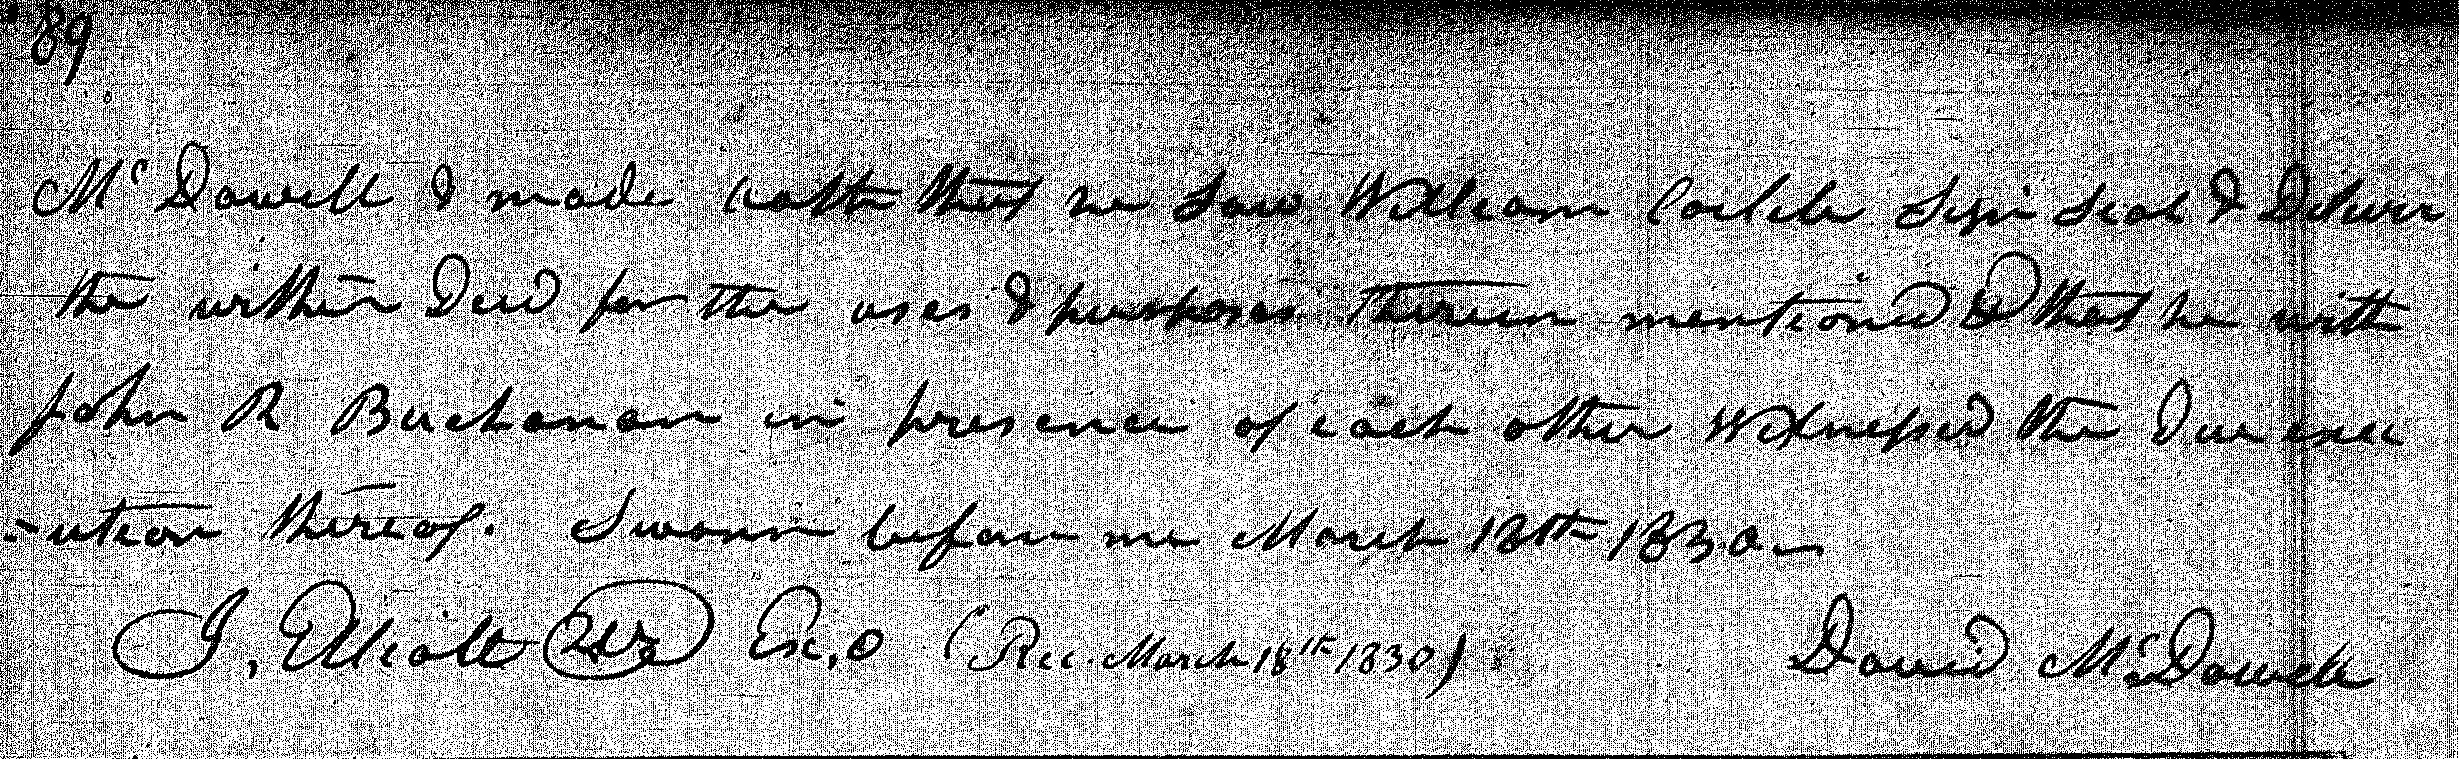 89
McDowell & made oath that he saw William sign seal & Deliver
the within Deed for the uses & purposes therein mentioned & that he with
John R Buchanan in presence of each other Witnessed the Due exec
-ution thereof. Sworn before me March 18th 1830
J. Elliott Ex, O (Rec. March 18th 1830) David McDowell